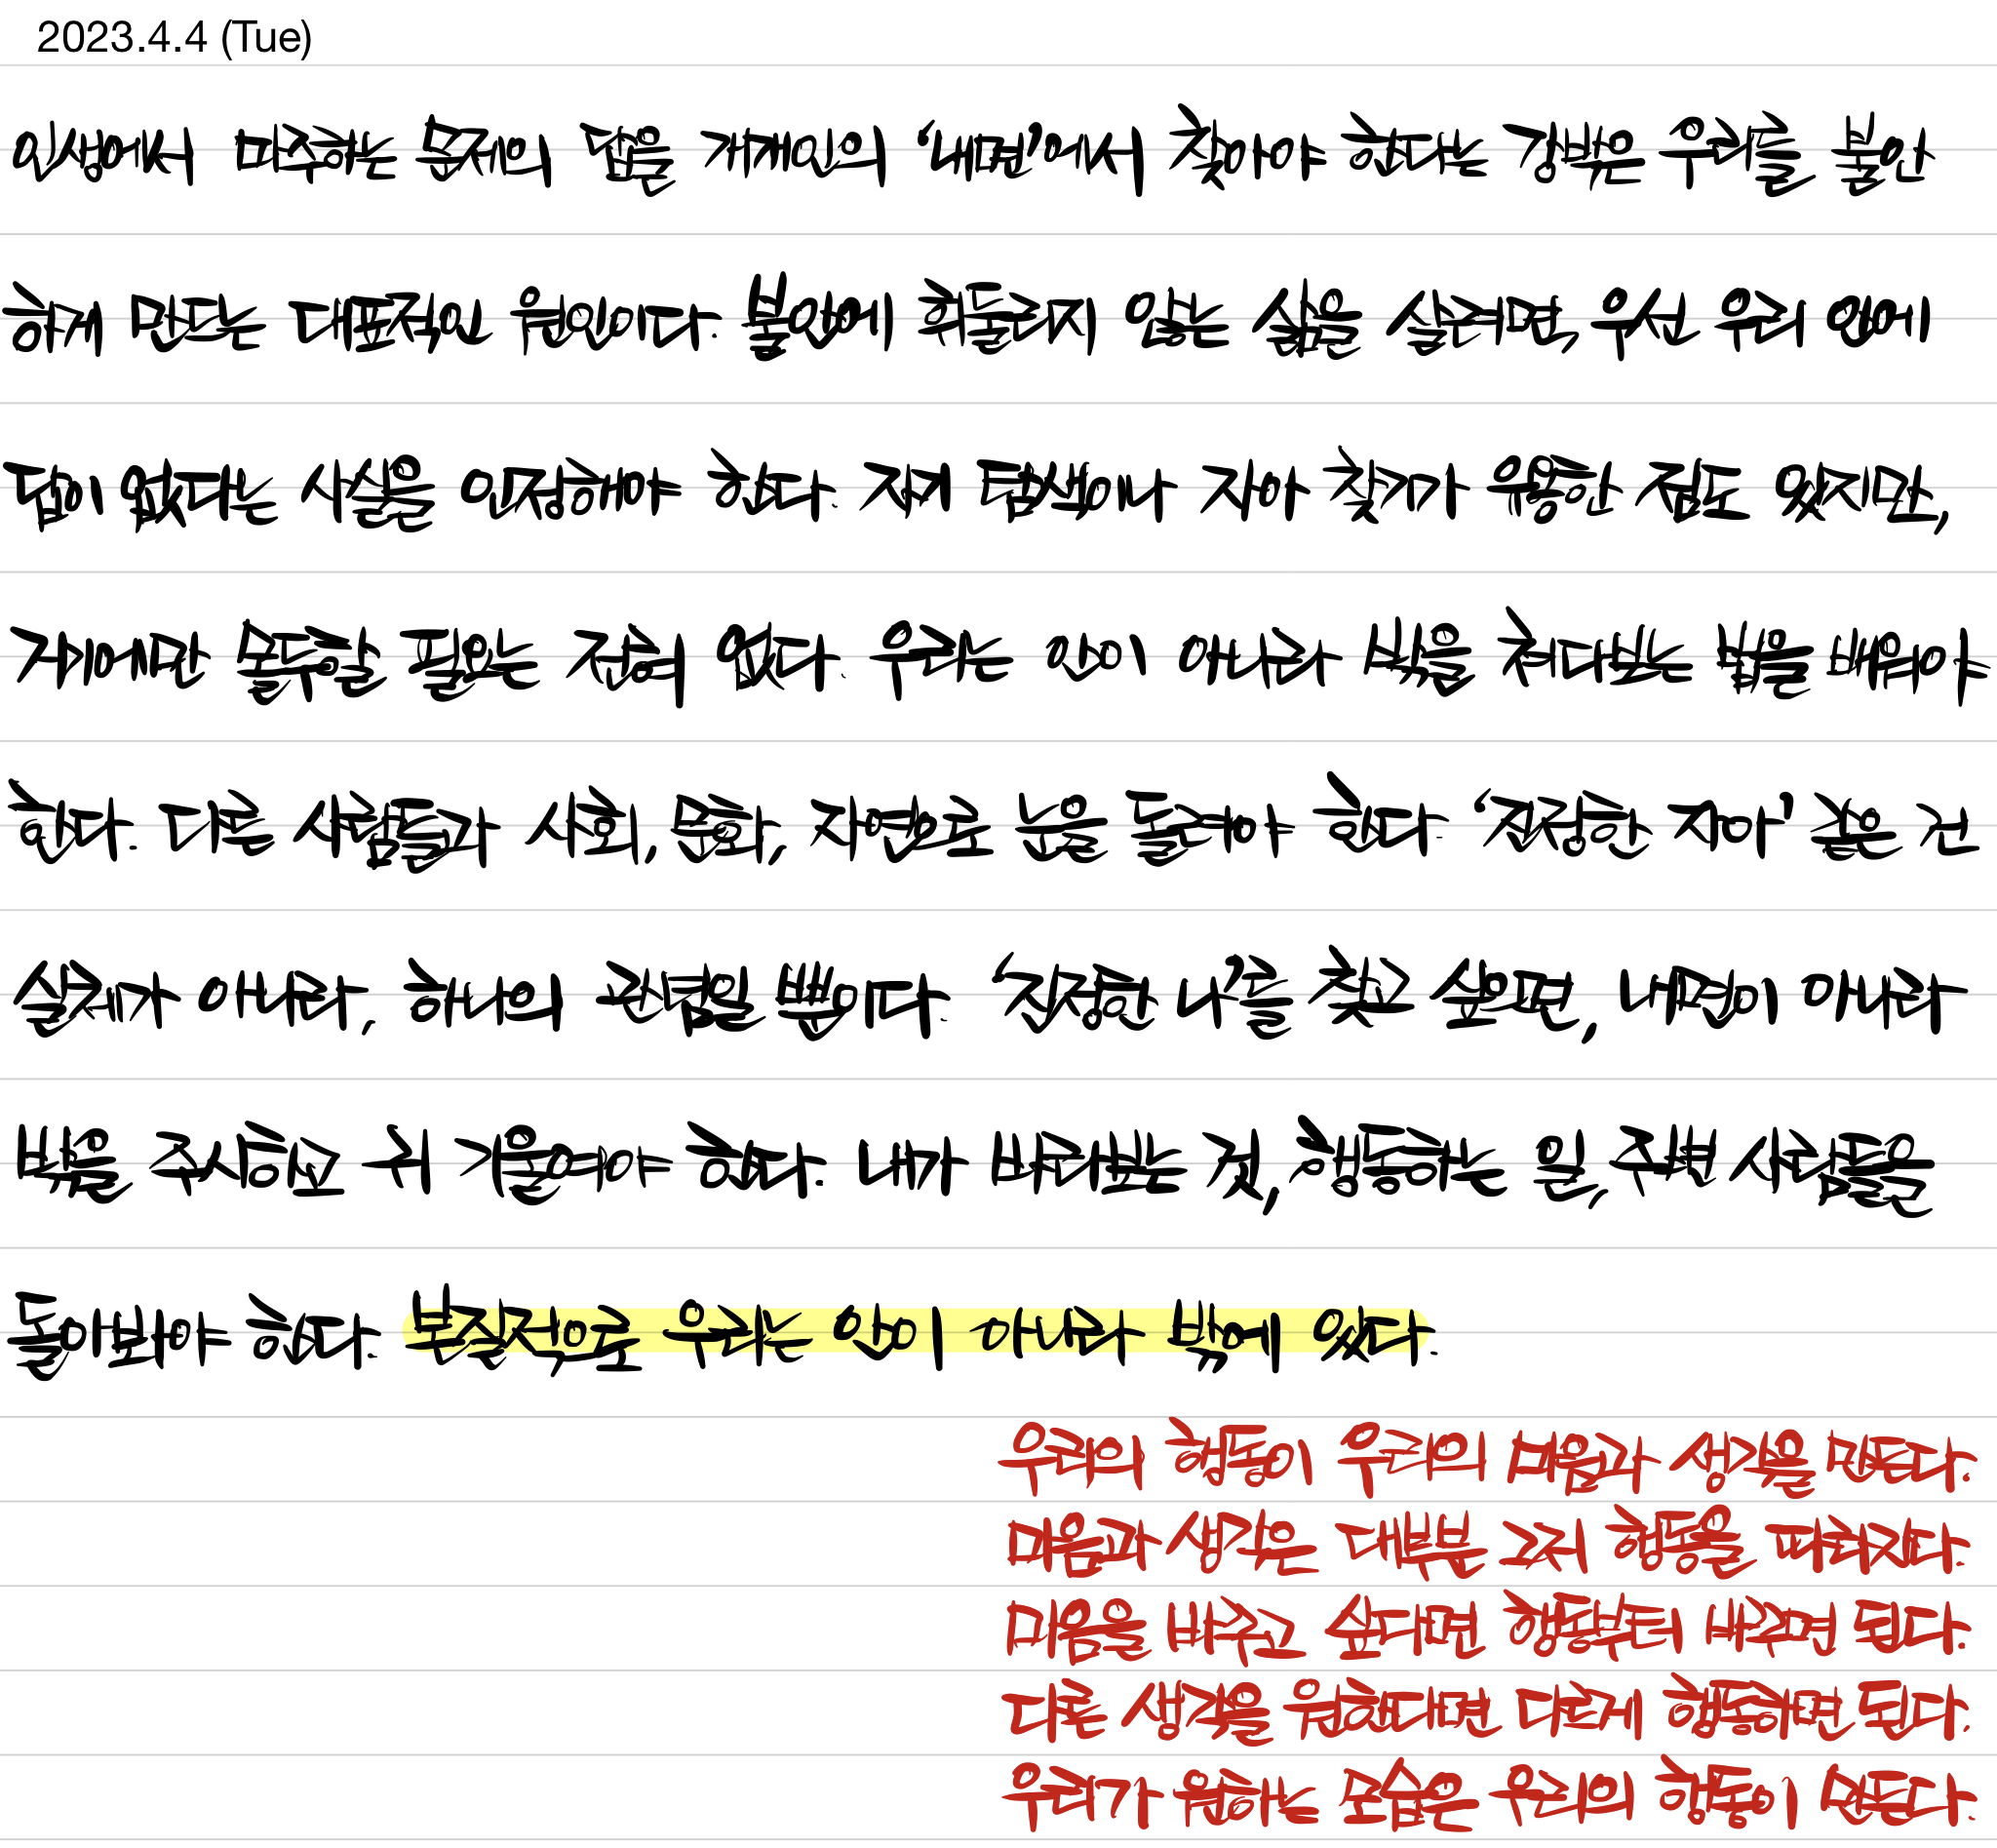 2023.4.4 (Tue)
인생에서 마주하는 문제의 답을 개개인의 '내면'에서 찾아야 한다는 강박은 우리를 불안
하게 만드는 대표적인 원인이다. 불안에 휘둘리지 않는 삶을 살려면, 우선 우리 안에
답이 없다는 사실을 인정해야 한다. 자기 탐색이나 자아 찾기가 유용한 점도 있지만,
거기에만 몰두할 필요는 전혀 없다. 우리는 안이 아니라 밖을 쳐다보는 법을 배워야
한다. 다른 사람들과 사회, 문화, 자연으로 눈을 돌려야 한다. '진정한 자아' 같은 건
실재가 아니라, 하나의 관념일 뿐이다. '진정한 나'를 찾고 싶으면, 내면이 아니라
밖을 주시하고 귀 기울여야 한다. 내가 바라보는 것, 행동하는 일, 주변 사람들을
돌아봐야 한다. 본질적으로 우리는 안이 아니라 밖에 있다.
우리의 행동이 우리의 마음과 생각을 만든다.
마음과 생각은 대부분 그저 행동을 따라간다.
마음을 바꾸고 싶다면 행동부터 바꾸면 된다.
다른 생각을 원한다면 다르게 행동하면 된다.
우리가 원하는 모습은 우리의 행동이 만든다.